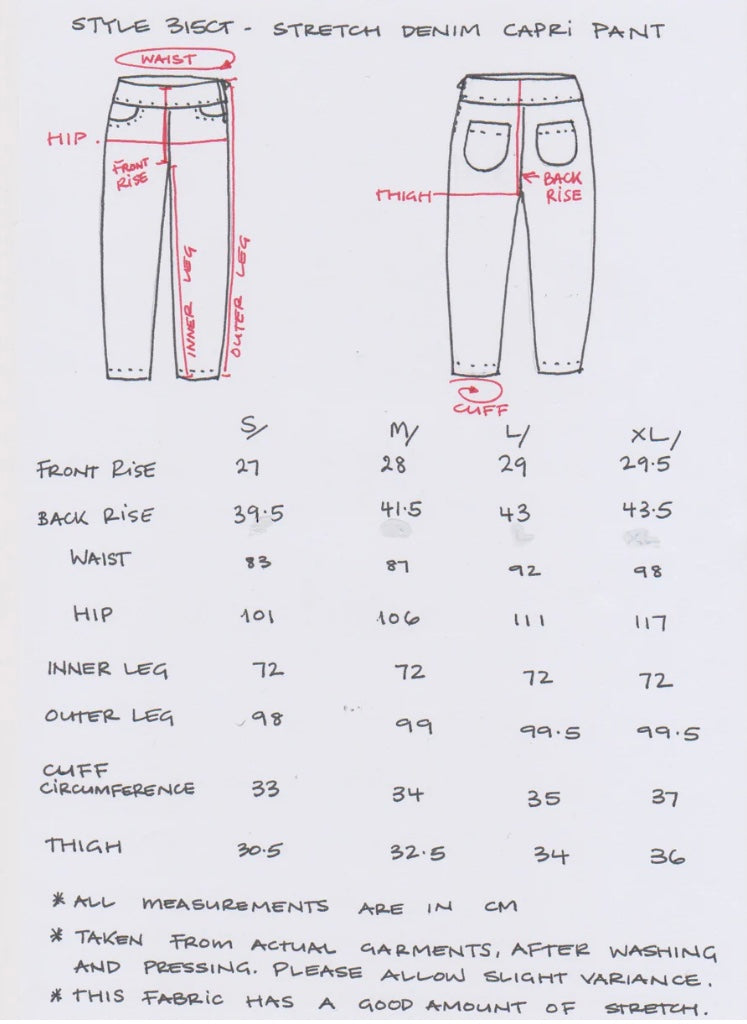 STYLE 315CT - STRETCH DENIM CAPRi PANT
WAIST
HIP
FRONT
RISE
INNER LEG
OUTER LEG
THIGH
BACK
RISE
CUFF
S/ M/ L/ XL/
FRONT RiSE 27 28 29 29.5
BACK RiSE 39.5 41.5 43 43.5
WAIST 83 87 92 98
HIP 101 106 111 117
INNER LEG 72 72 72 72
OUTER LEG 98 99 99.5 99.5
CUFF
CiRCUMFERENCE 33 34 35 37
THIGH 30.5 32.5 34 36
* ALL MEASUREMENTS ARE IN CM
* TAKEN FROM ACTUAL GARMENTS, AFTER WASHING
AND PRESSING. PLEASE ALLOW SLIGHT VARIANCE.
* THIS FABRIC HAS A GOOD AMOUNT OF STRETCH.